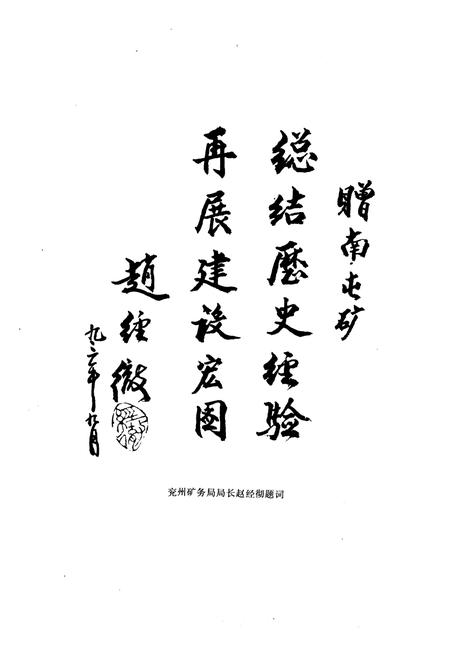 贈南屯矿
總结歷史经验
再展建设宏图
趙经徹
九二年九月
兖州矿务局局长赵经彻题词